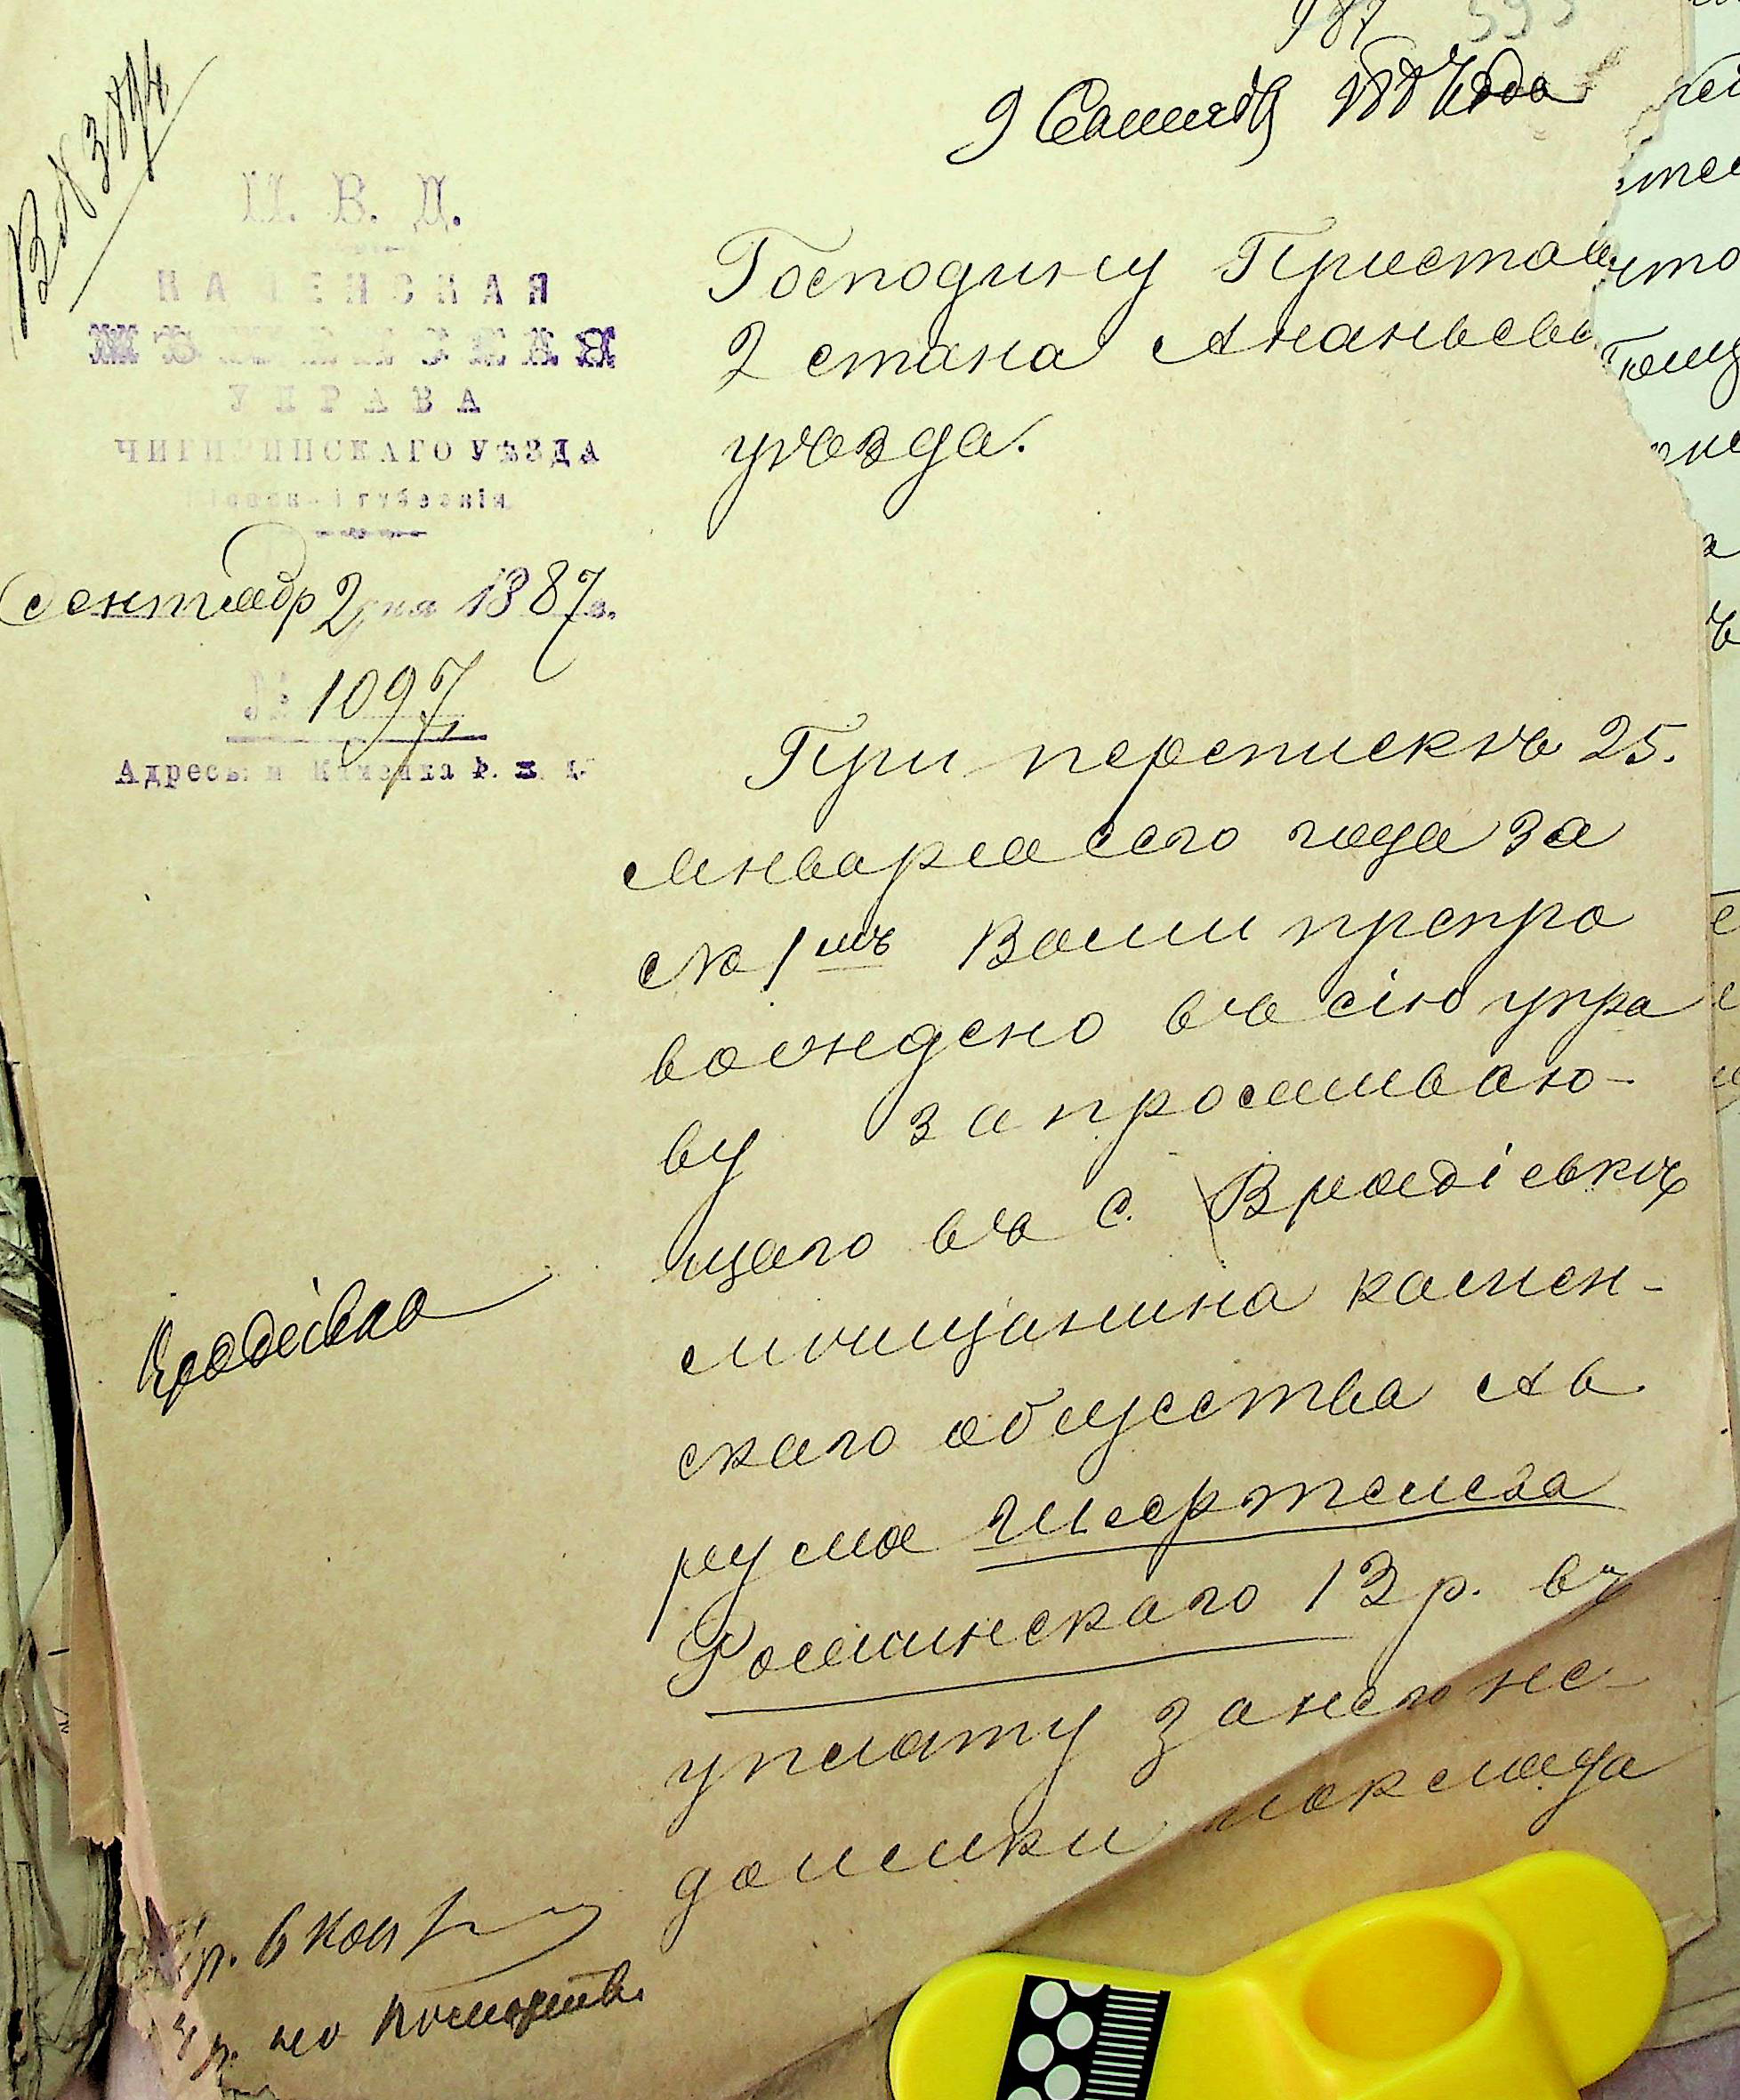 9 Сентяб 1887 года
В. № 3894
М. В. Д.
КАМЕНСКАЯ
МѢЩАНСКАЯ
УПРАВА
ЧИГИРИНСКАГО УѢЗДА
Кіевской губерніи
Сентябр 2 дня 1887 г.
№ 1097
Адресъ: м Каменка Ф. ж. д.
Господину Пристав
2 стана Ананьевс
уѣзда.
При перепискѣ 25.
Января сего года за
№ 1мъ Вами препро
вождено въ сію упра
ву запрожываю-
щаго въ с. Врадіевкѣ
мѣщанина камен-
скаго общества Ав
рума Шертелева
Рослинскаго 13 р. въ
уплату за него не-
доимки оклада
Врадіевка
р. 6 коп
4 р. по